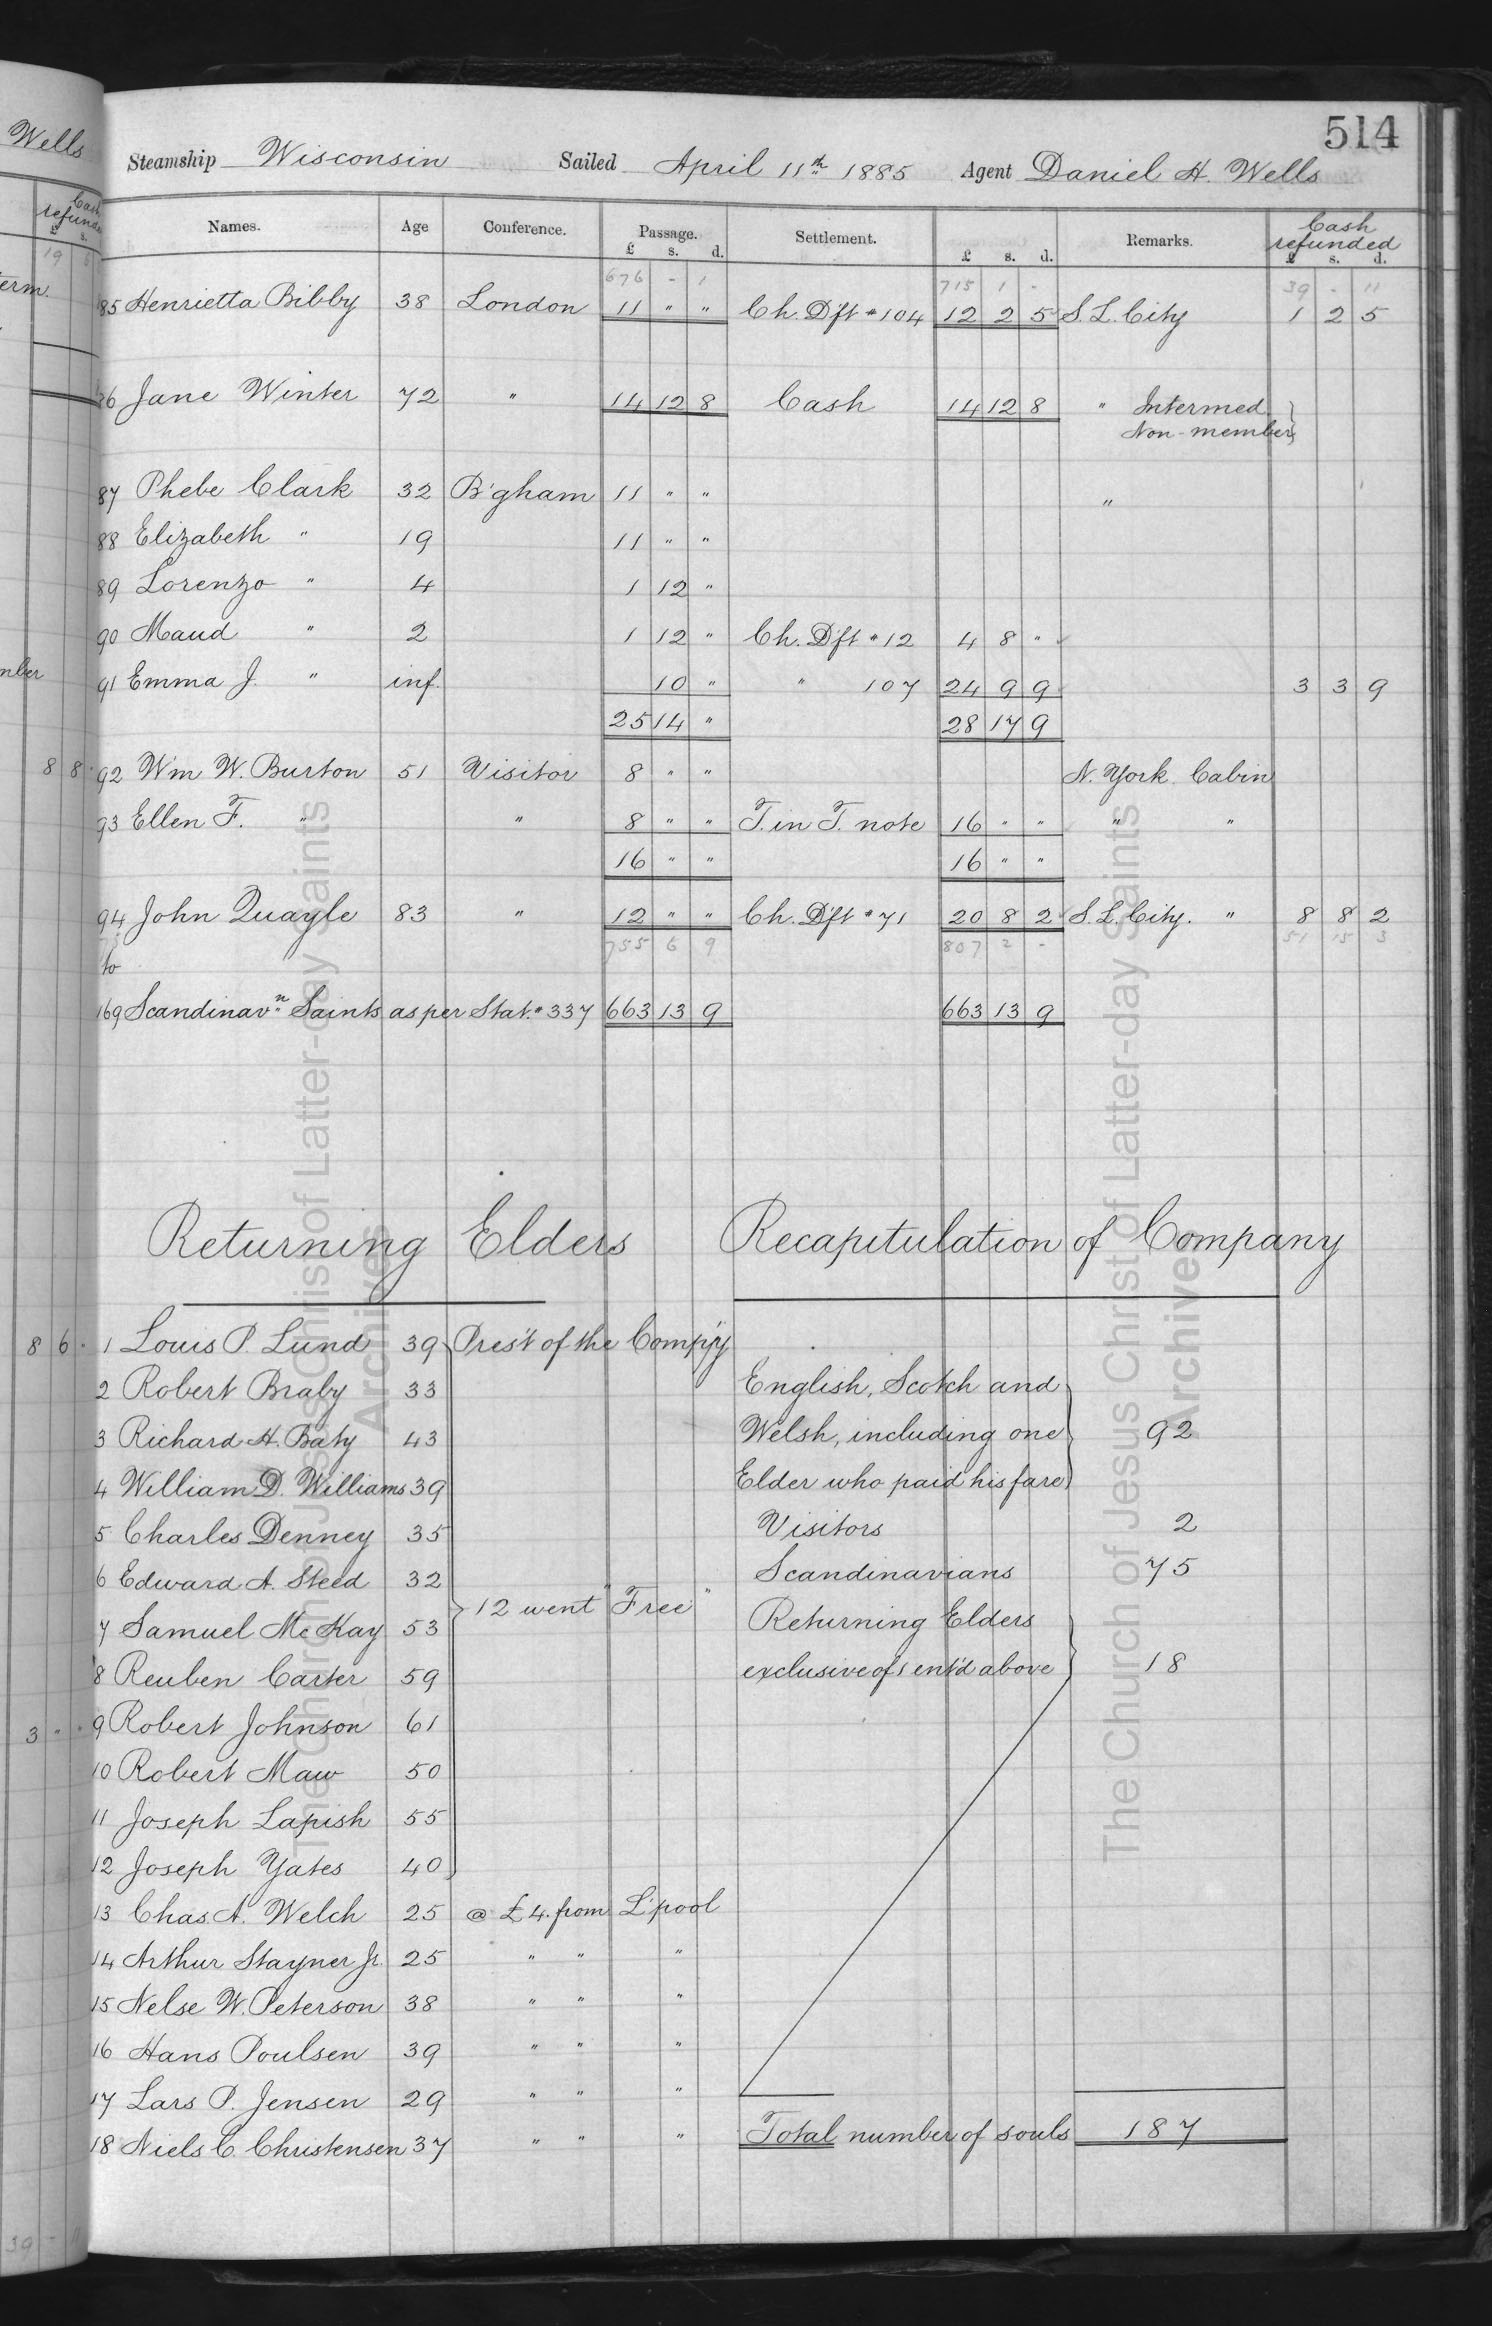 514
Steamship Wisconsin Sailed April 11th 1885 Agent Daniel H. Wells
Names. Age Conference. Passage. Settlement. Remarks. Cash refunded
£ s. d. £ s. d. £ s. d.
676 - 1 715 1 - 39 - 11
85 Henrietta Bibby 38 London 11 " " Ch. D'ft # 104 12 2 5 S. L. City 1 2 5
86 Jane Winter 72 " 14 12 8 Cash 14 12 8 " Intermed.
Non-member
87 Phebe Clark 32 B'gham 11 " " "
88 Elizabeth " 19 11 " "
89 Lorenzo " 4 1 12 "
90 Maud " 2 1 12 " Ch. Dft # 12 4 8 "
91 Emma J. " inf. 10 " " 107 24 9 9 3 3 9
25 14 " 28 17 9
92 Wm W. Burton 51 Visitor 8 " " N. York Cabin
93 Ellen F. " " 8 " " T. in T. note 16 " " " "
16 " " 16 " "
94 John Quayle 83 " 12 " " Ch. D'ft # 71 20 8 2 S. L. City. " 8 8 2
755 6 9 807 2 - 51 15 3
to
169 Scandinavn Saints as per Stat. # 337 663 13 9 663 13 9
Returning Elders
1 Louis P. Lund 39 Pres't of the Comp'y
2 Robert Braby 33
3 Richard H. Baty 43
4 William D. Williams 39
5 Charles Denney 35
6 Edward A. Steed 32
12 went "Free"
7 Samuel McKay 53
8 Reuben Carter 59
9 Robert Johnson 61
10 Robert Maw 50
11 Joseph Lapish 55
12 Joseph Yates 40
13 Chas. A. Welch 25 @ £4. from L'pool
14 Arthur Stayner Jr. 25 " " "
15 Nelse W. Peterson 38 " " "
16 Hans Poulsen 39 " " "
17 Lars P. Jensen 29 " " "
18 Niels C. Christensen 37 " " "
Recapitulation of Company
English, Scotch and
Welsh, including one 92
Elder who paid his fare
Visitors 2
Scandinavians 75
Returning Elders
exclusive of 1 ent'd above 18
Total number of souls 187
Wells
Cash
refunded
£ s.
19
term.
mber
8 8
8 6
3 " "
39 - 11
The Church of Jesus Christ of Latter-day Saints
Archives
The Church of Jesus Christ of Latter-day Saints
Archives